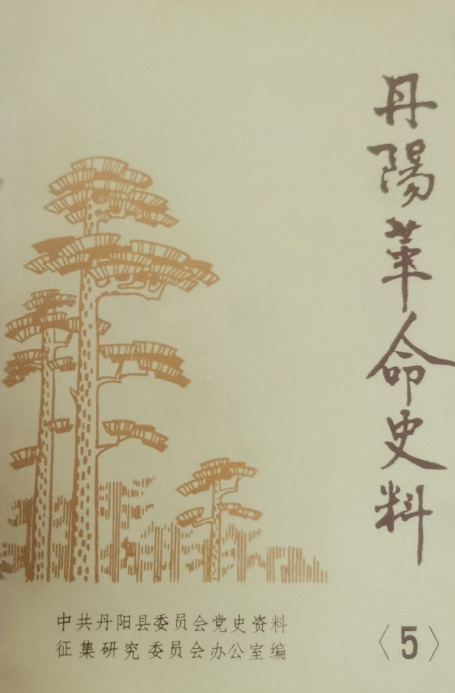 丹陽革命史料
〈5〉
中共丹阳县委员会党史资料
征集研究委员会办公室编